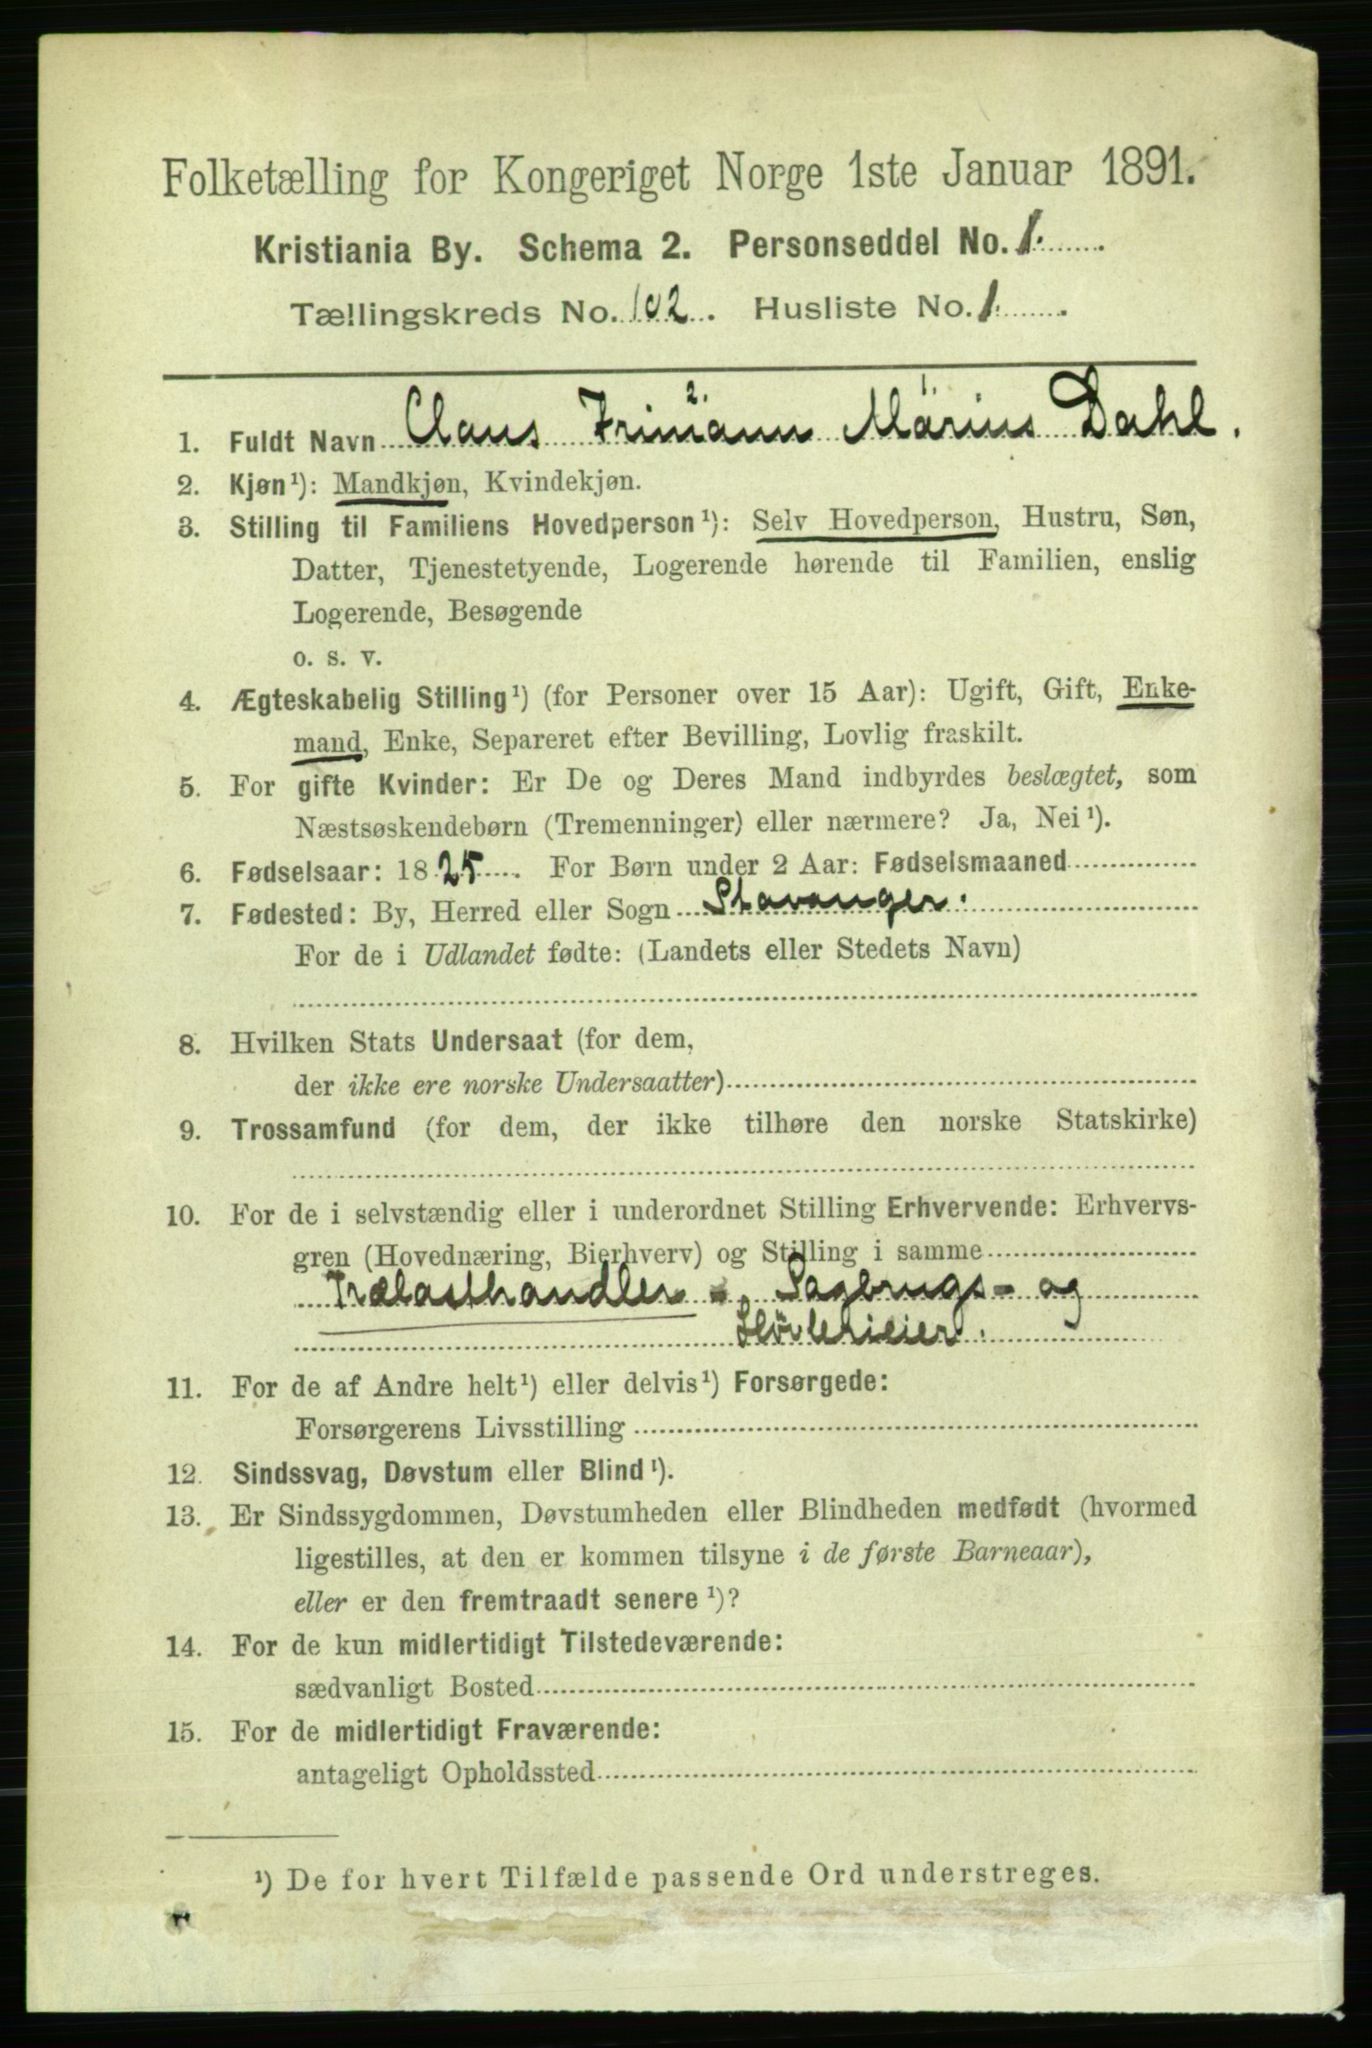 Folketælling for Kongeriget Norge 1ste Januar 1891.
Kristiania By. Schema 2. Personseddel No. 1.
Tællingskreds No. 102. Husliste No. 1.
2. 1.
1. Fuldt Navn Claus Frimann Marius Dahl.
2. Kjøn¹): Mandkjøn, Kvindekjøn.
3. Stilling til Familiens Hovedperson¹): Selv Hovedperson, Hustru, Søn,
Datter, Tjenestetyende, Logerende hørende til Familien, enslig
Logerende, Besøgende
o. s. v.
4. Ægteskabelig Stilling¹) (for Personer over 15 Aar): Ugift, Gift, Enke-
mand, Enke, Separeret efter Bevilling, Lovlig fraskilt.
5. For gifte Kvinder: Er De og Deres Mand indbyrdes beslægtet, som
Næstsøskendebørn (Tremenninger) eller nærmere? Ja, Nei¹).
6. Fødselsaar: 1825. For Børn under 2 Aar: Fødselsmaaned
7. Fødested: By, Herred eller Sogn Stavanger.
For de i Udlandet fødte: (Landets eller Stedets Navn)
8. Hvilken Stats Undersaat (for dem,
der ikke ere norske Undersaatter)
9. Trossamfund (for dem, der ikke tilhøre den norske Statskirke)
10. For de i selvstændig eller i underordnet Stilling Erhvervende: Erhvervs-
gren (Hovednæring, Bierhverv) og Stilling i samme
Trælasthandler - Sagbrugs- og
Høvlerieier.
11. For de af Andre helt¹) eller delvis¹) Forsørgede:
Forsørgerens Livsstilling
12. Sindssvag, Døvstum eller Blind¹).
13. Er Sindssygdommen, Døvstumheden eller Blindheden medfødt (hvormed
ligestilles, at den er kommen tilsyne i de første Barneaar),
eller er den fremtraadt senere¹)?
14. For de kun midlertidigt Tilstedeværende:
sædvanligt Bosted
15. For de midlertidigt Fraværende:
antageligt Opholdssted
¹) De for hvert Tilfælde passende Ord understreges.